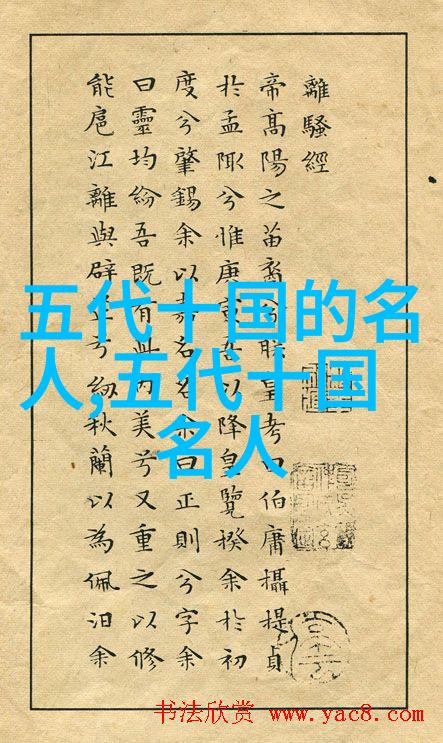 離騷經
帝高陽之苗裔兮朕皇考曰伯庸攝提貞
於孟陬兮惟庚寅吾以降皇覽揆余於初
度兮肇錫余以嘉名名余曰正則兮字余
曰靈均紛吾既有此內美兮又重之以修
能扈江離與辟芷兮紉秋蘭以為佩汨余
五代十国的名
人,五代十国
名人
书法欣赏 www.yac8.com